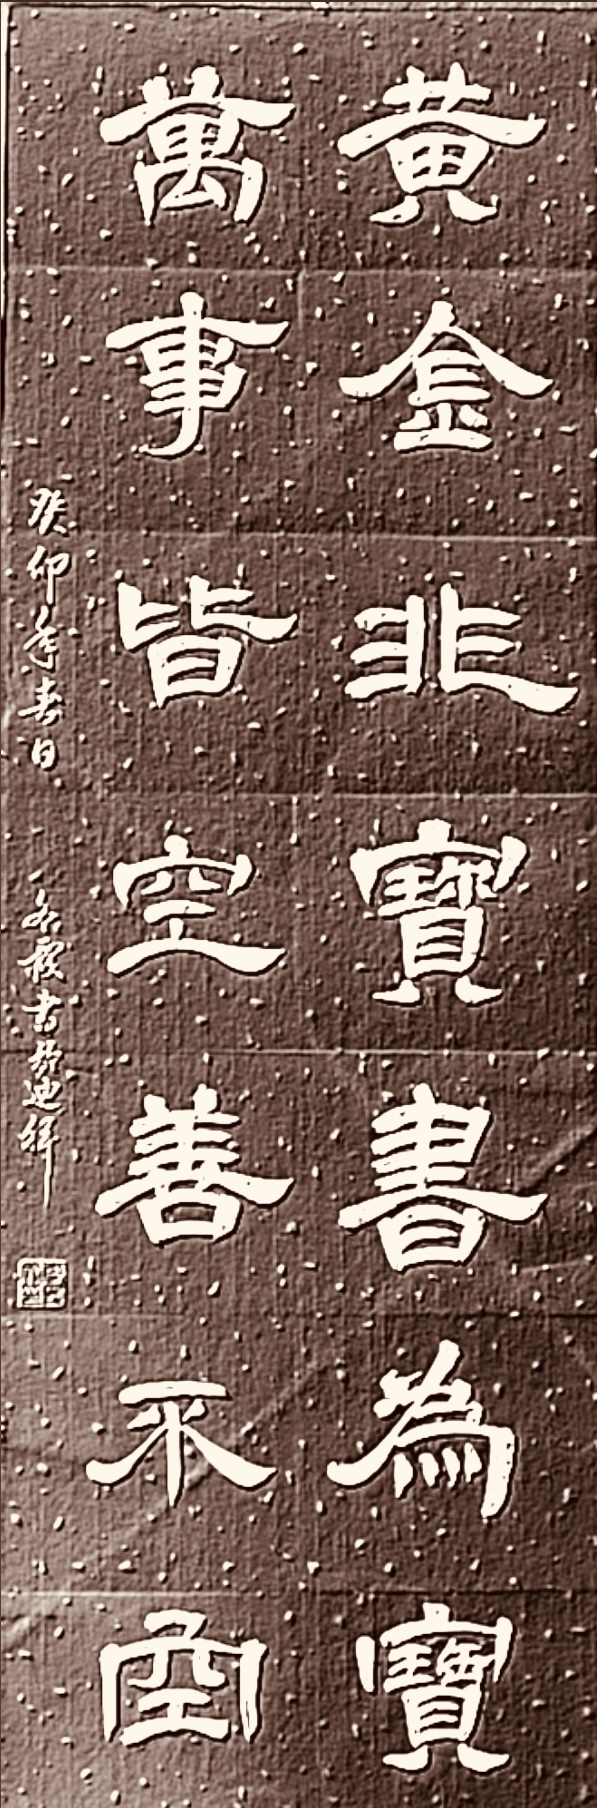 黃金非寶書為寶
萬事皆空善不空
癸卯年春日
書於迪拜